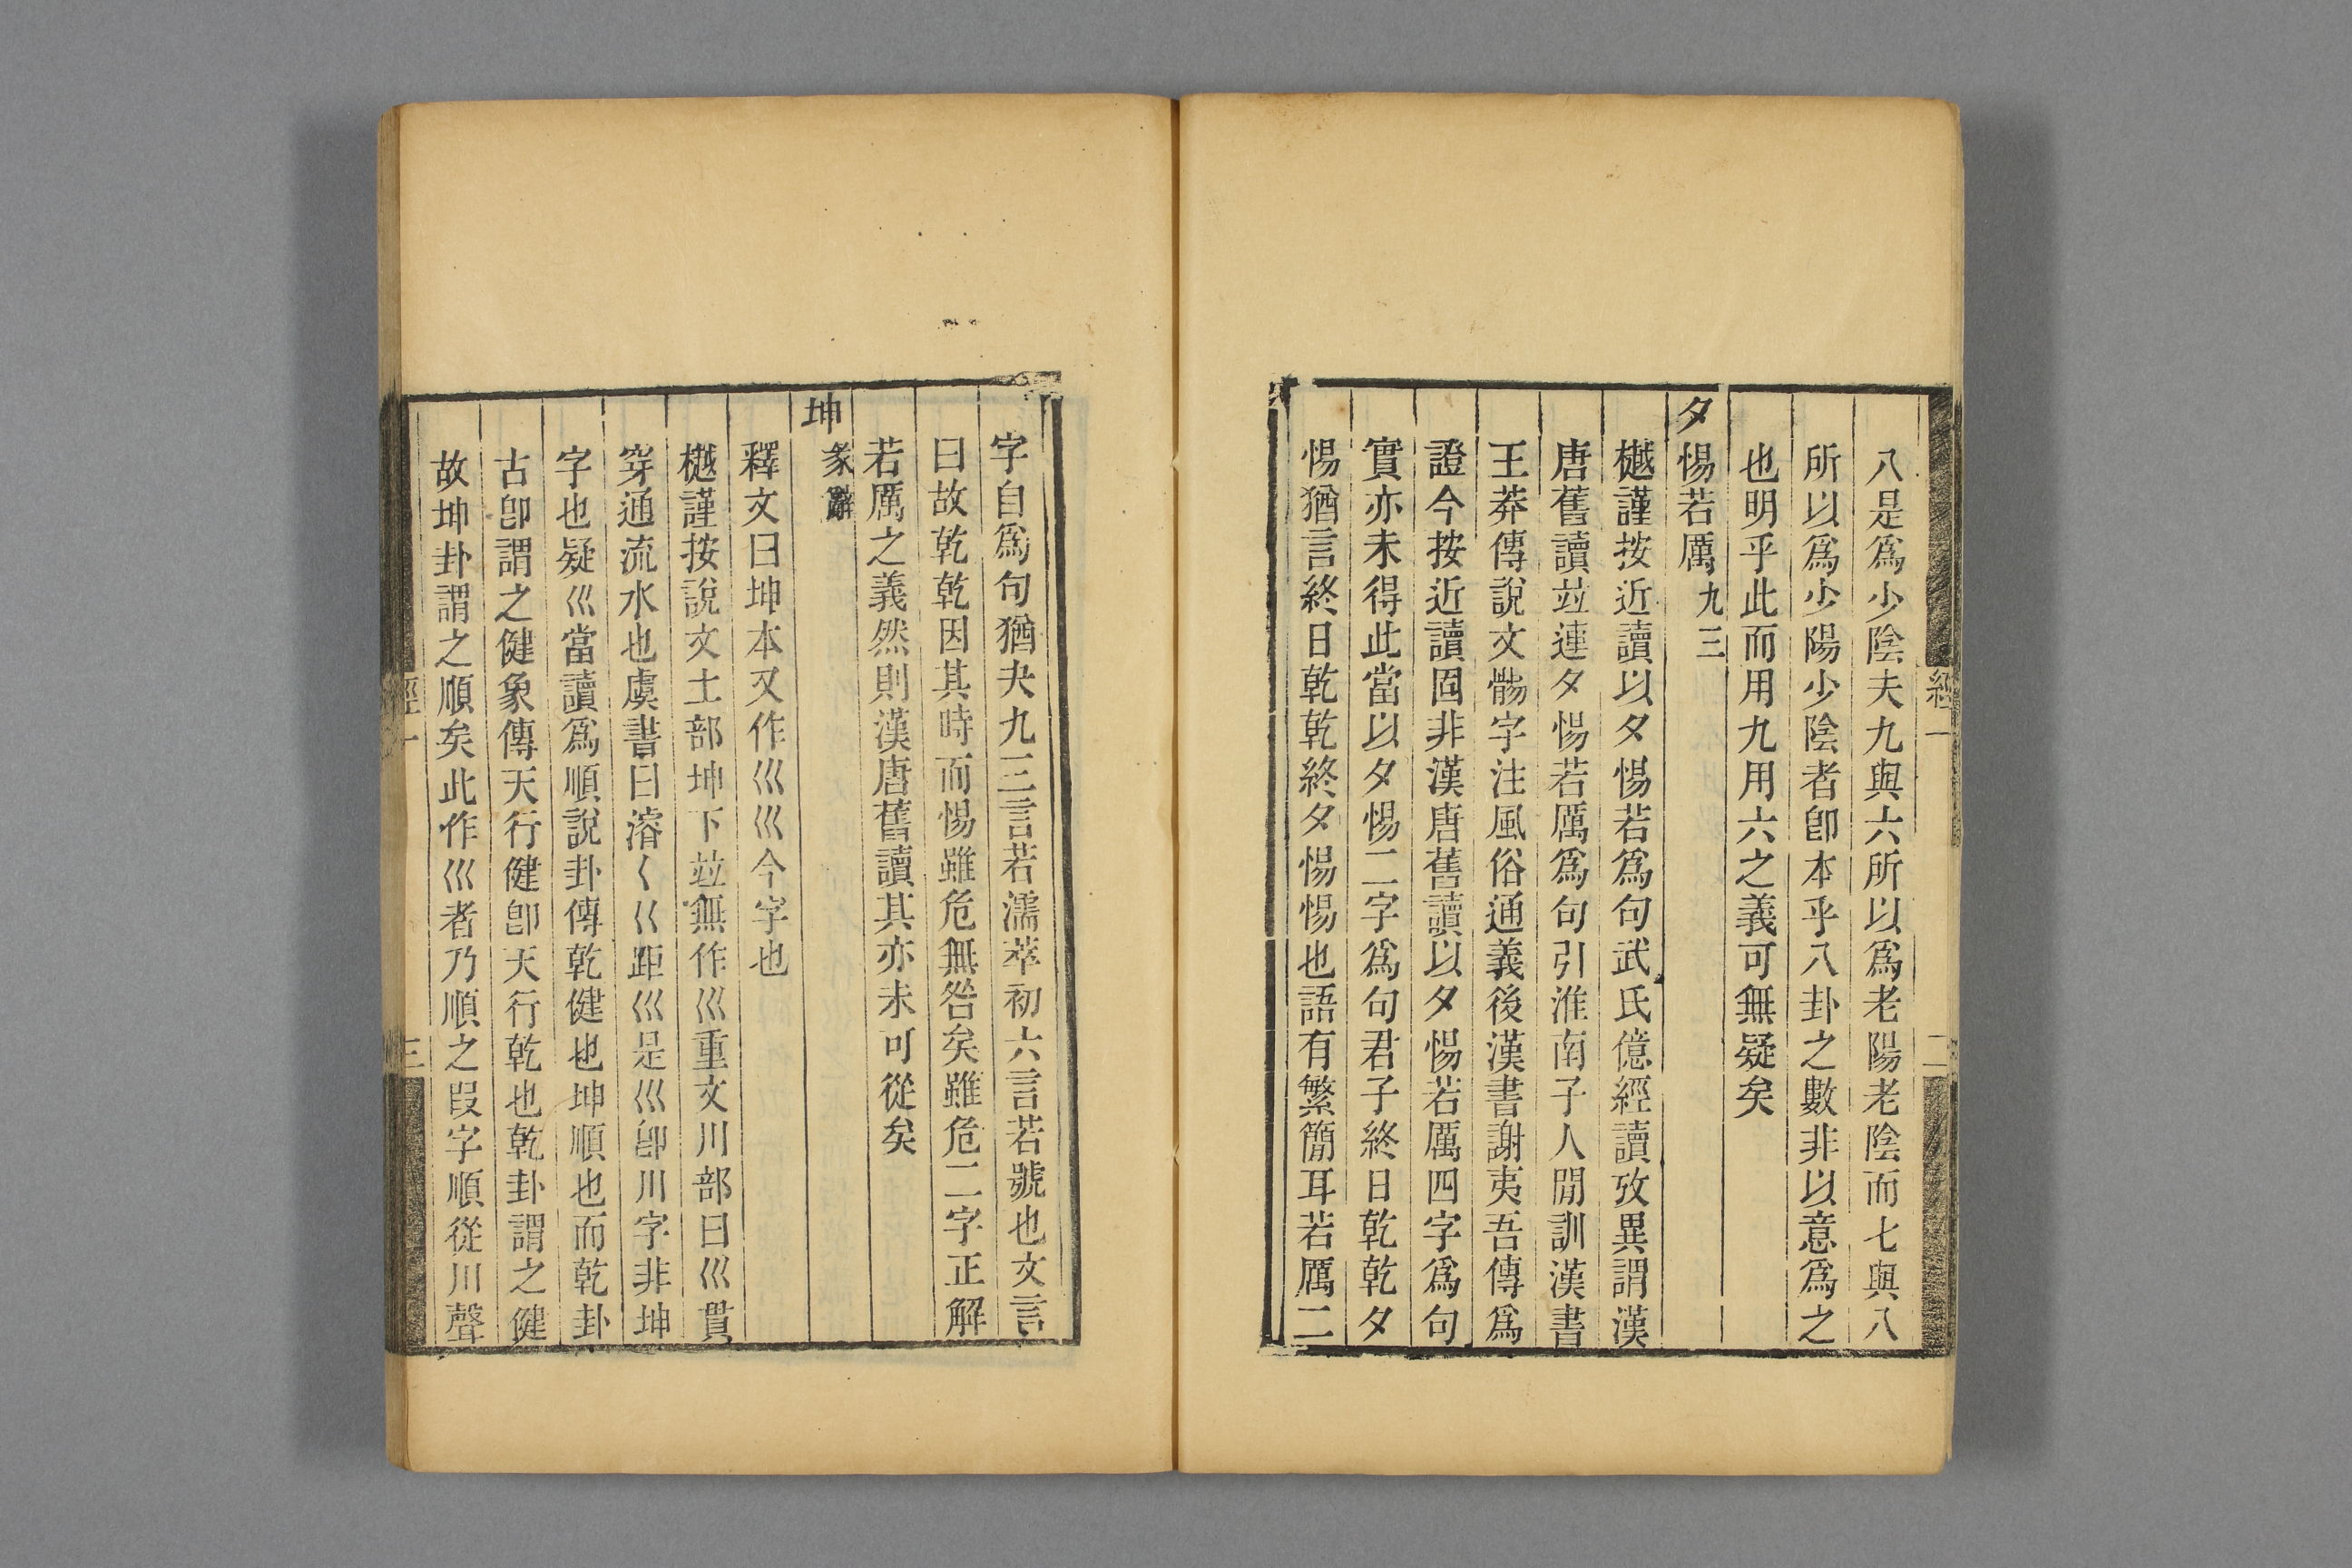 經一
二
八是爲少陰夫九與六所以爲老陽老陰而七與八
所以爲少陽少陰者卽本乎八卦之數非以意爲之
也明乎此而用九用六之義可無疑矣
夕惕若厲九三
樾謹按近讀以夕惕若爲句武氏億經讀攷異謂漢
唐舊讀竝連夕惕若厲爲句引淮南子人閒訓漢書
王莽傳說文𩩲字注風俗通義後漢書謝夷吾傳爲
證今按近讀固非漢唐舊讀以夕惕若厲四字爲句
實亦未得此當以夕惕二字爲句君子終日乾乾夕
惕猶言終日乾乾終夕惕惕也語有繁簡耳若厲二
字自爲句猶夬九三言若濡萃初六言若號也文言
曰故乾乾因其時而惕雖危無咎矣雖危二字正解
若厲之義然則漢唐舊讀其亦未可從矣
坤彖辭
釋文曰坤本又作巛巛今字也
樾謹按說文土部坤下竝無作巛重文川部曰巛貫
穿通流水也虞書曰濬〈巜距巛是巛卽川字非坤
字也疑巛當讀爲順說卦傳乾健也坤順也而乾卦
古卽謂之健象傳天行健卽天行乾也乾卦謂之健
故坤卦謂之順矣此作巛者乃順之叚字順從川聲
經一
三